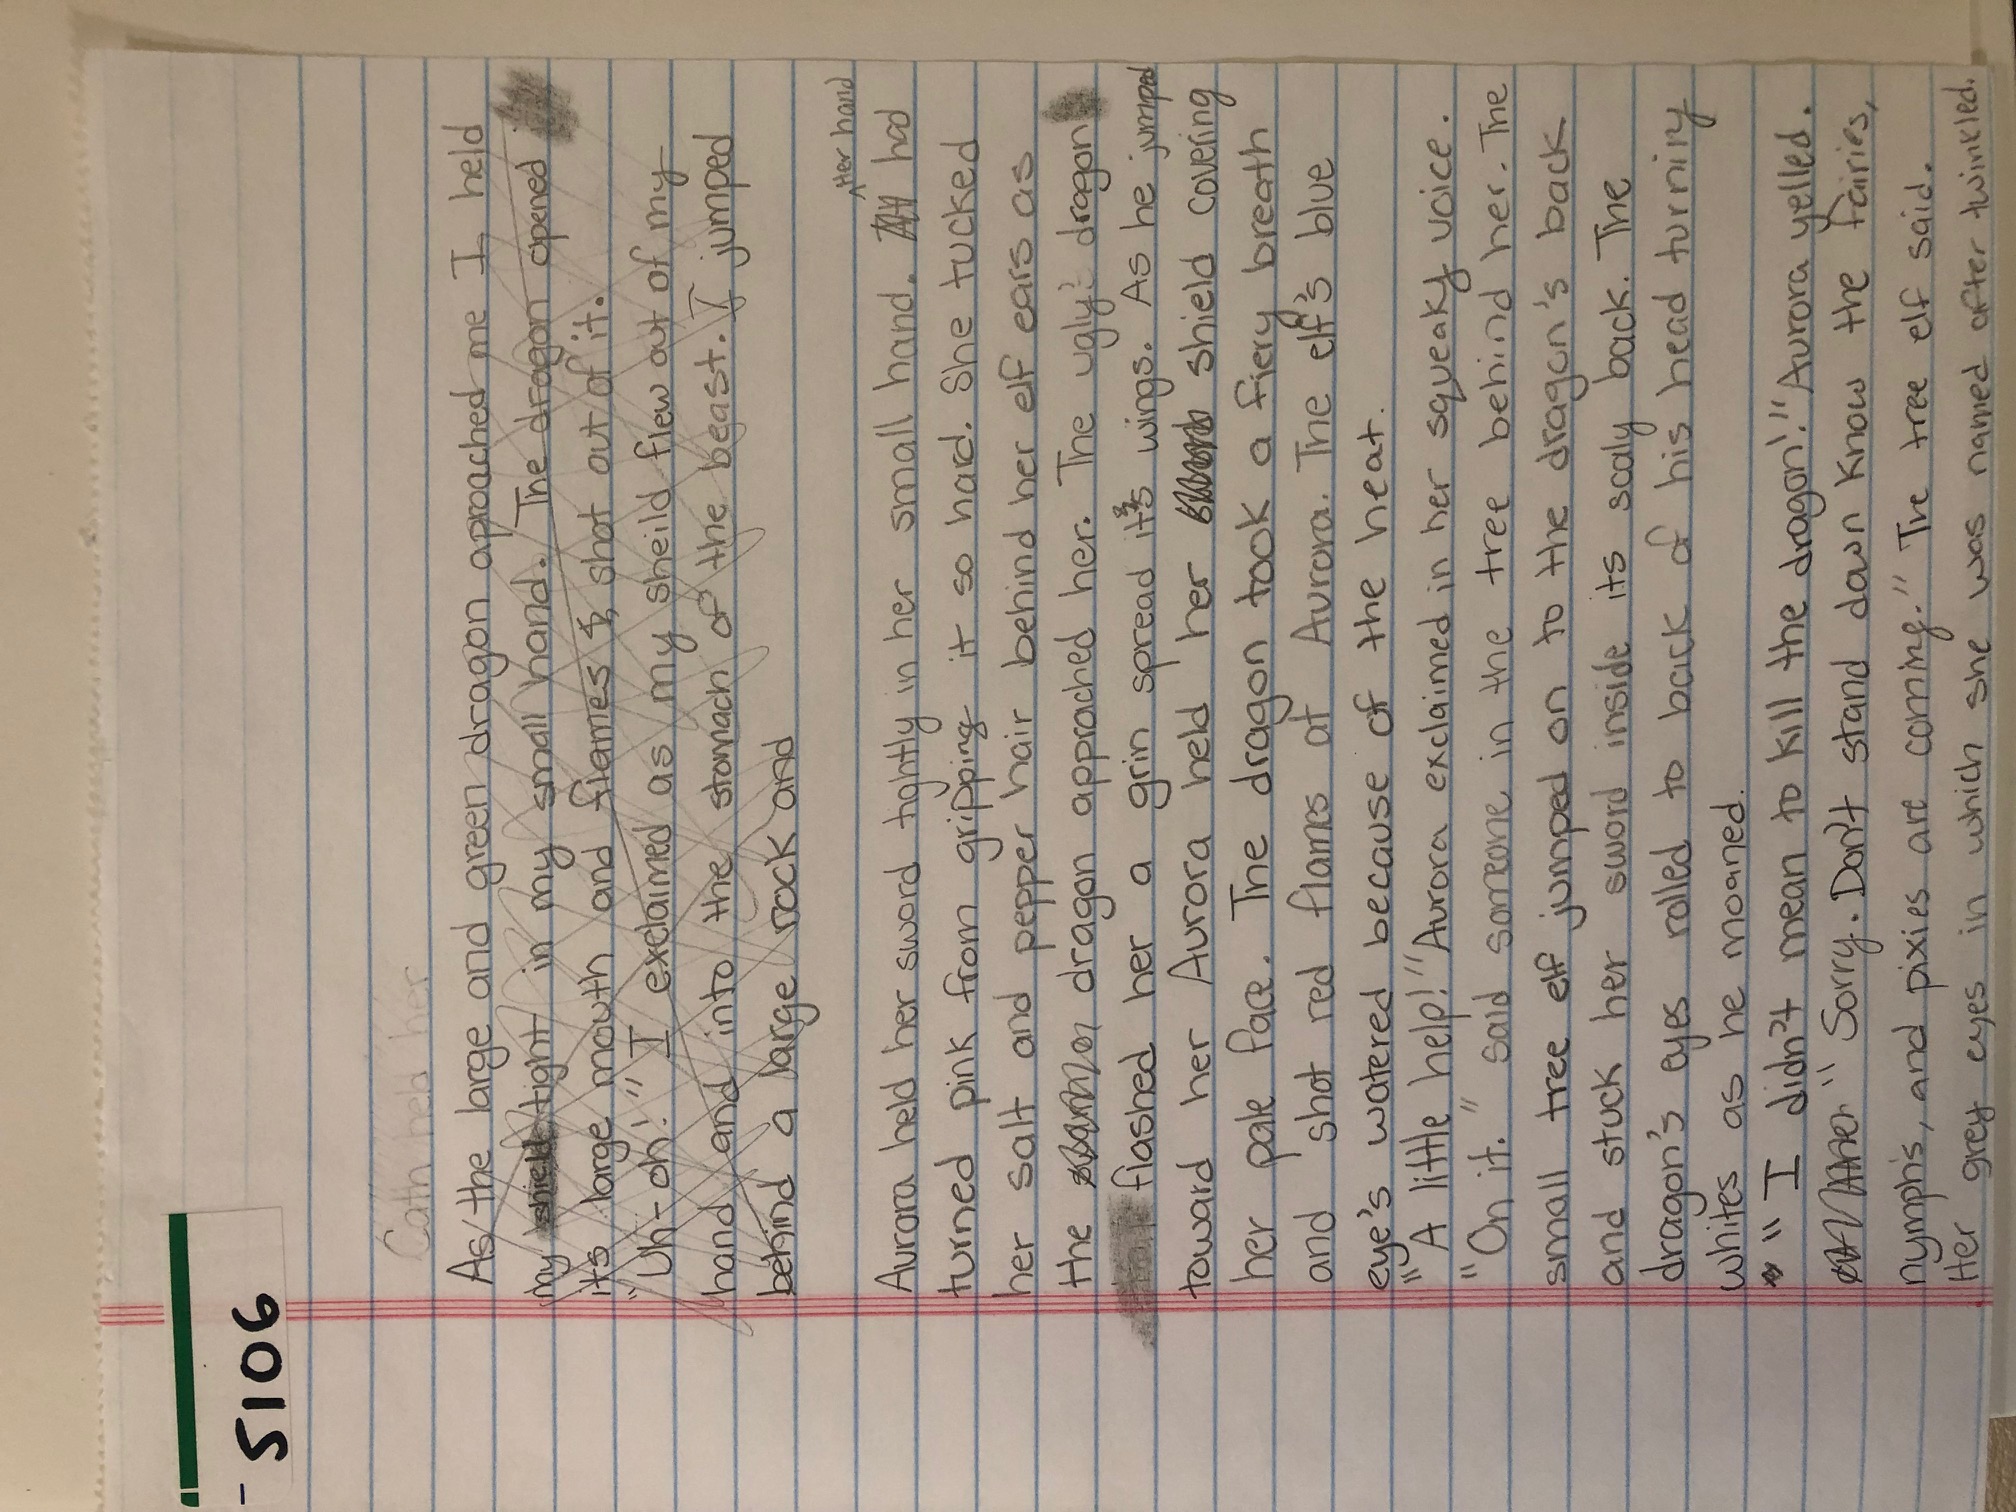 5106
Cath held her
As the large and green dragon aproached me I held
my shield tight in my small hand. The dragon opened
its large mouth and flames shot out of it.
"Uh-oh!" I exclaimed as my sheild flew out of my
hand and into the stomach of the beast. I jumped
behind a large rock and
Her hand
Aurora held her sword tightly in her small hand. had
turned pink from gripping it so hard. She tucked
her salt and pepper hair behind her elf ears as
the dragon apprached her. The ugly dragon
flashed her a grin spread it's wings. As he jumped
toward her Aurora held her shield covering
her pale face. The dragon took a fiery breath
and shot red flames at Aurora. The elf's blue
eye's watered because of the heat.
"A little help!" Aurora exclaimed in her squeaky voice.
"On it." said someone in the tree behind her. The
small tree elf jumped on to the dragon's back
and stuck her sword inside its scaly back. The
dragon's eyes rolled to back of his head turning
whites as he moaned.
"I didn't mean to kill the dragon!" Aurora yelled.
"Sorry. Don't stand down know the fairies,
nymph's, and pixies are coming." The tree elf said.
Her grey eyes in which she was named after twinkled.